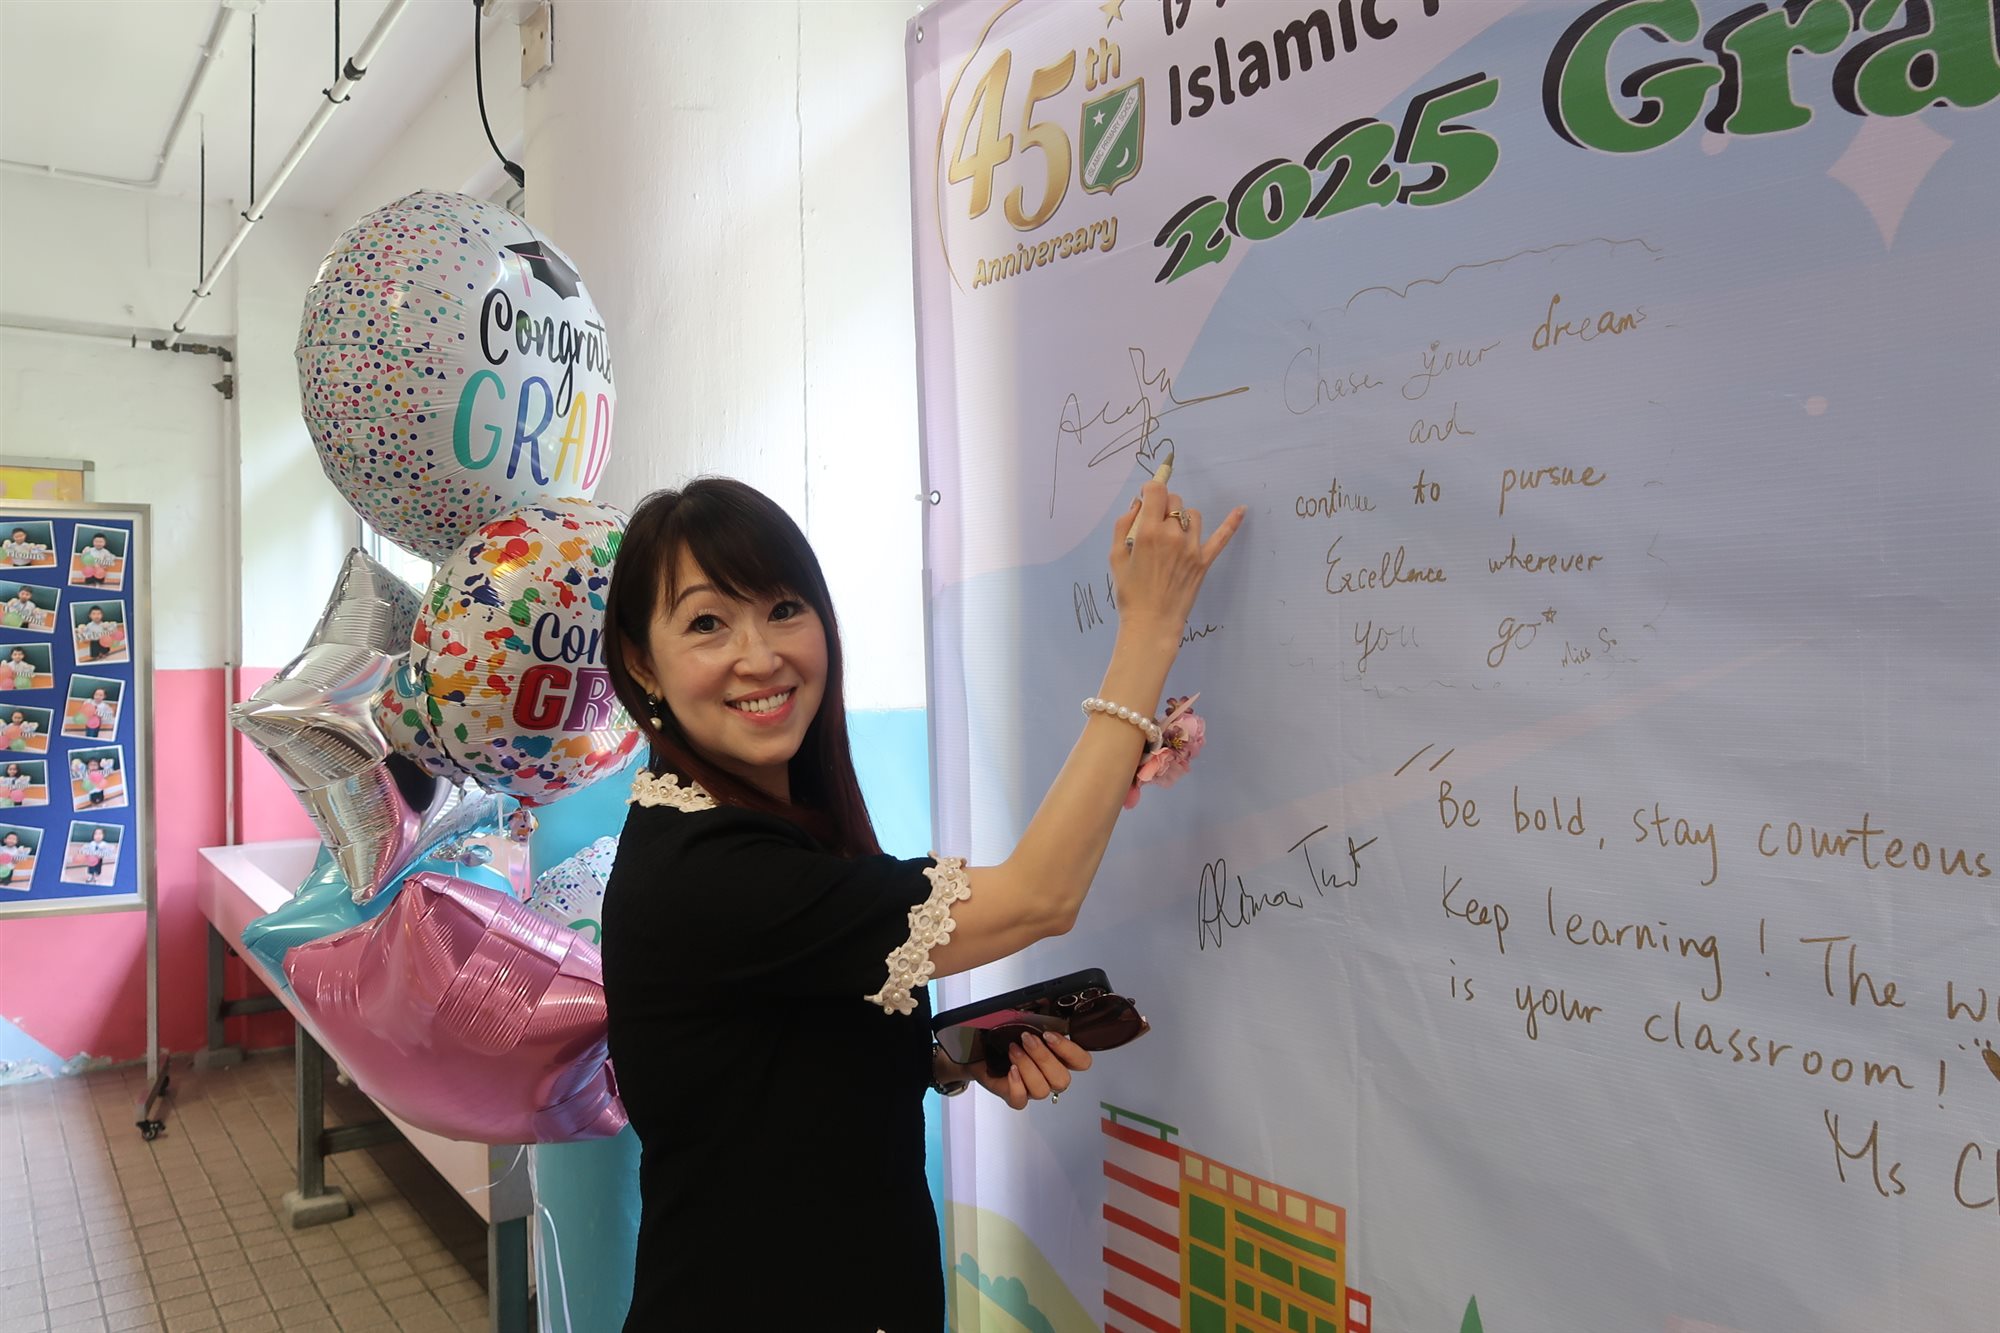 45th
Anniversary
ISLAMIC PRIMARY SCHOOL
Islamic
2025 Gra
Congrats
GRAD
Con
GR
Chase your dreams
and
continue to pursue
Excellence wherever
you go
Miss So
All t
Be bold, stay courteous
Keep learning! The w
is your classroom!
Ms C